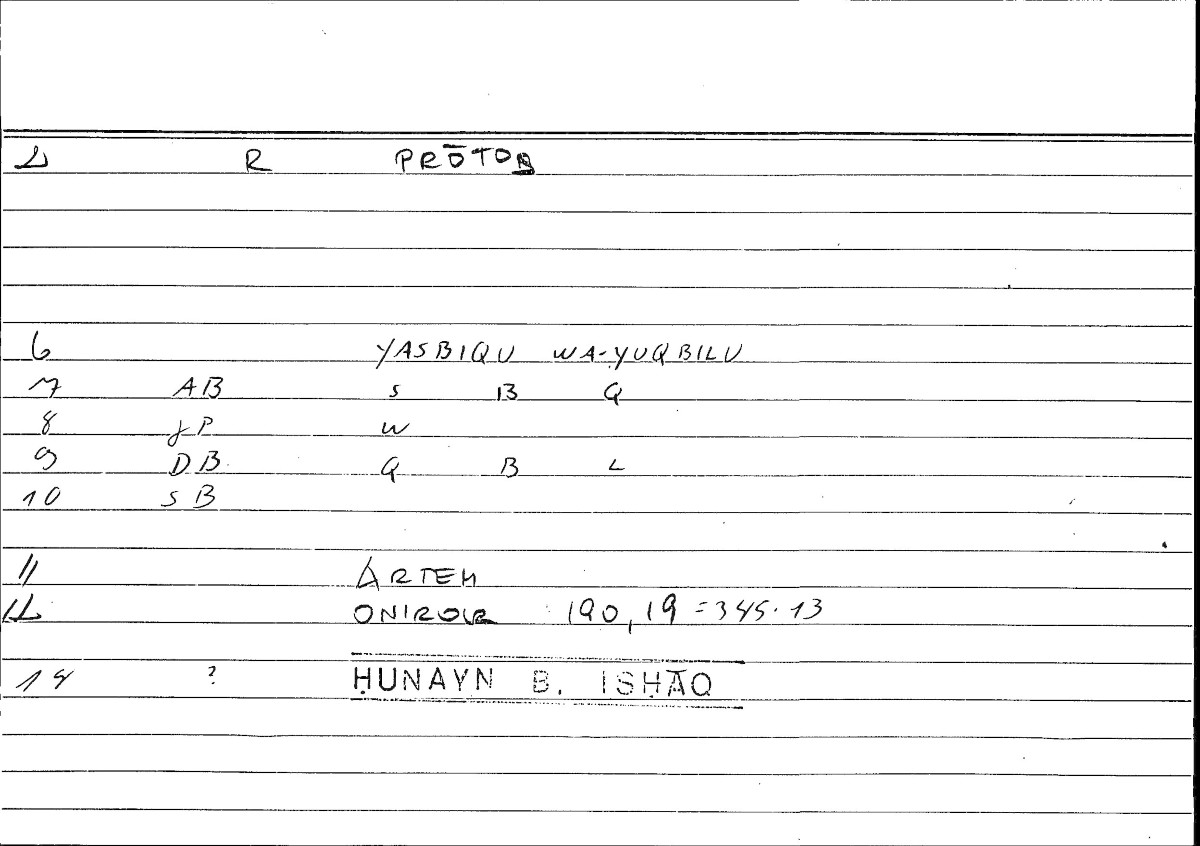 2 R PRŌTOS
6 YASBIQU WA-YUQBILU
7 AB S B Q
8 JP W
9 DB Q B L
10 SB
11 ARTEM
12 ONIROCR 190,19 = 345.13
18 ? ḤUNAYN B. ISḤĀQ